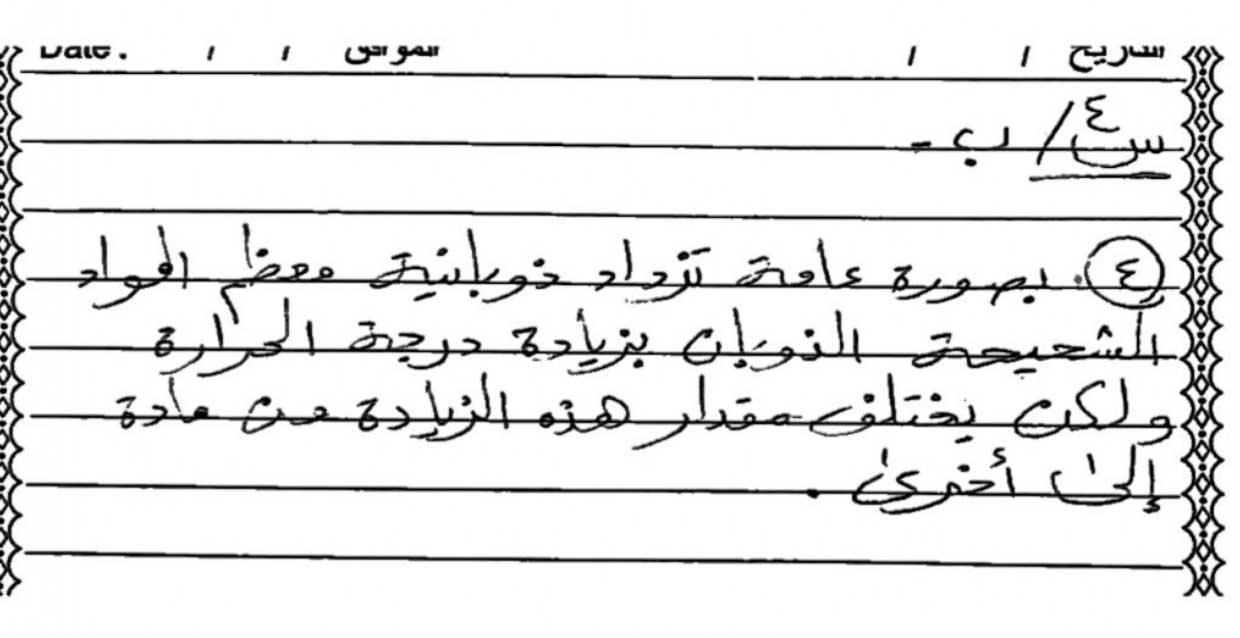 التاريخ / / الموافق / / Date :
س٤/ ب -
٤. بصورة عامة تزداد ذوبانية معظم المواد
الشحيحة الذوبان بزيادة درجة الحرارة
ولكن يختلف مقدار هذه الزيادة من مادة
إلى أخرى.